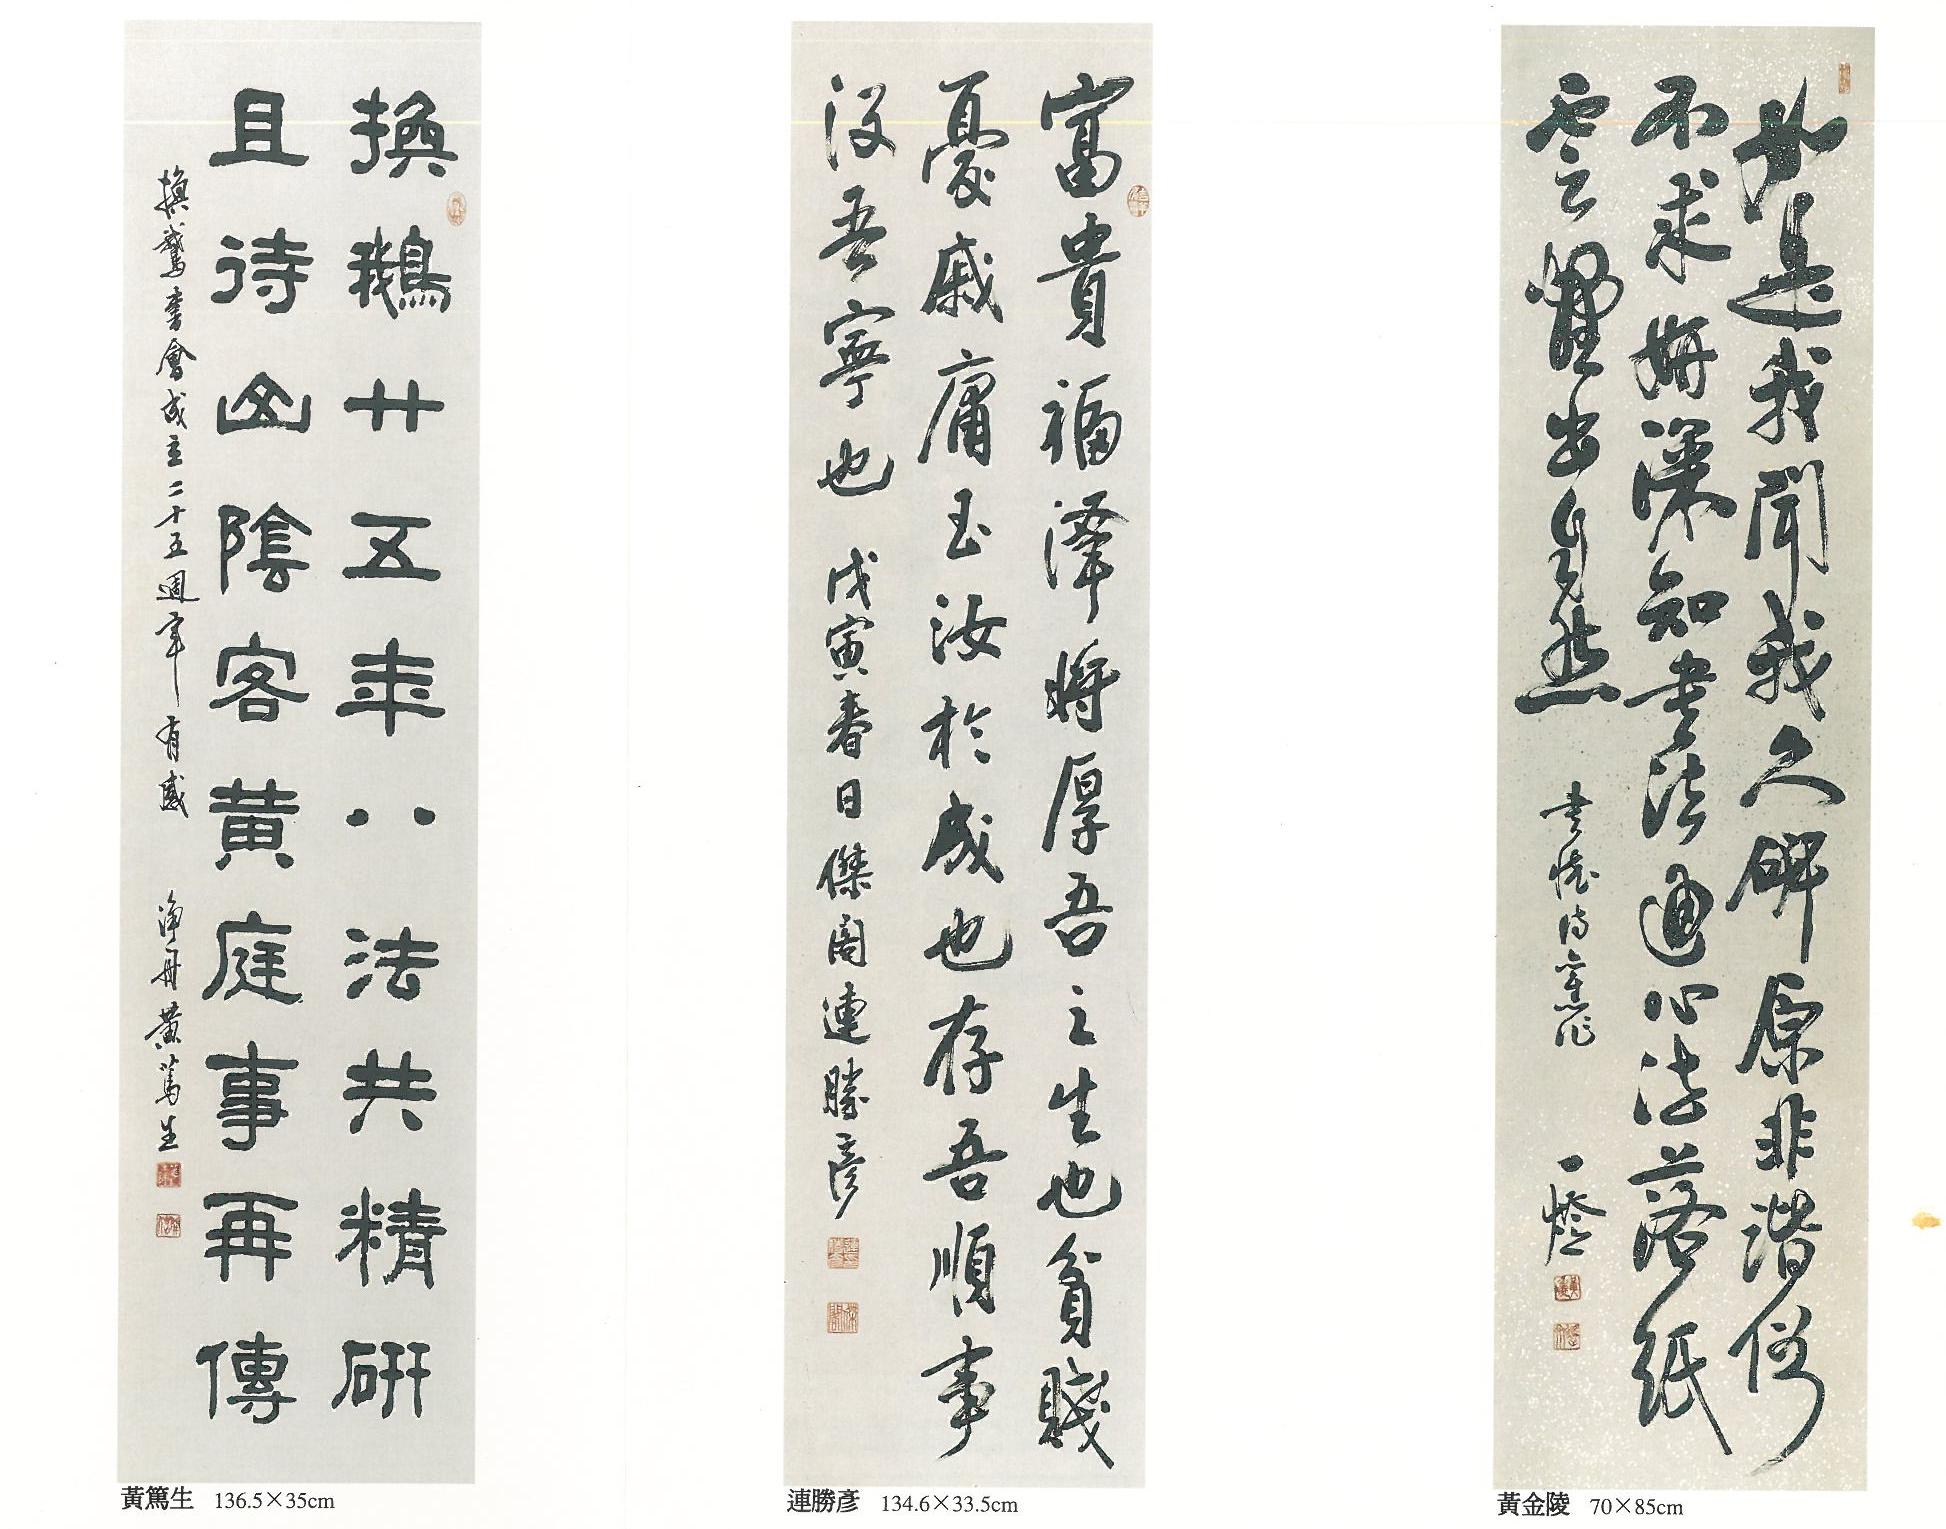 換鵝廿五年八法共精研
且待山陰客黃庭事再傳
換鵞書會成立二十五週年有感 淨舟黃篤生
黃篤生 136.5×35cm
富貴福澤將厚吾之生也貧賤
憂戚庸玉汝於成也存吾順事
沒吾寧也 戊寅春日傑閣連勝彥
連勝彥 134.6×33.5cm
如是我聞我久碑原非諧俗
不求妍深知書法通心法落紙
雲煙出自然 書懷詩舊作 一
黃金陵 70×85cm